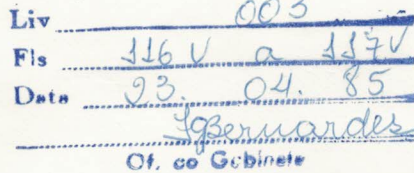 Liv 003
Fls 116 V a 117V
Data 23. 04. 85
Bernardes
Of. co Gabinete